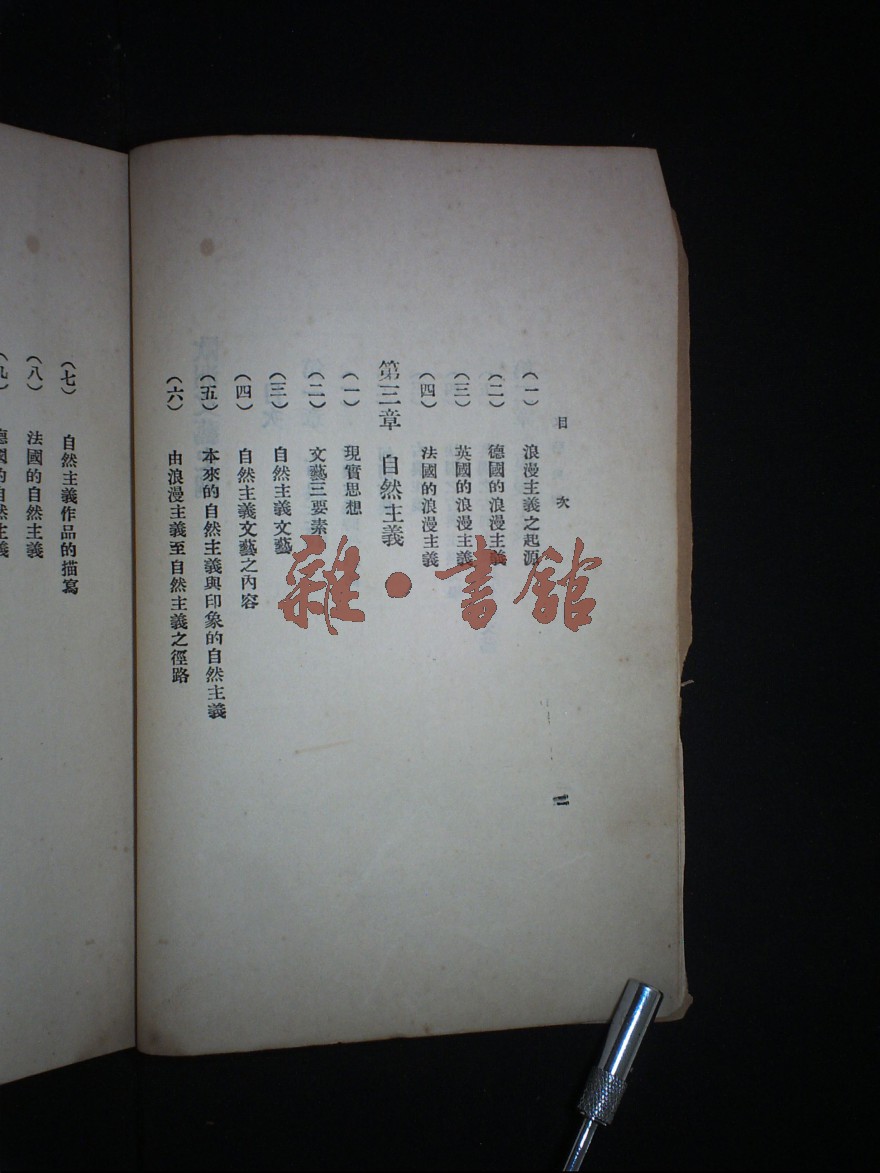 目次
(一) 浪漫主義之起源
(二) 德國的浪漫主義
(三) 英國的浪漫主義
(四) 法國的浪漫主義
第三章 自然主義
(一) 現實思想
(二) 文藝三要素
(三) 自然主義文藝
(四) 自然主義文藝之內容
(五) 本來的自然主義與印象的自然主義
(六) 由浪漫主義至自然主義之徑路
(七) 自然主義作品的描寫
(八) 法國的自然主義
(九) 德國的自然主義
雜・書館